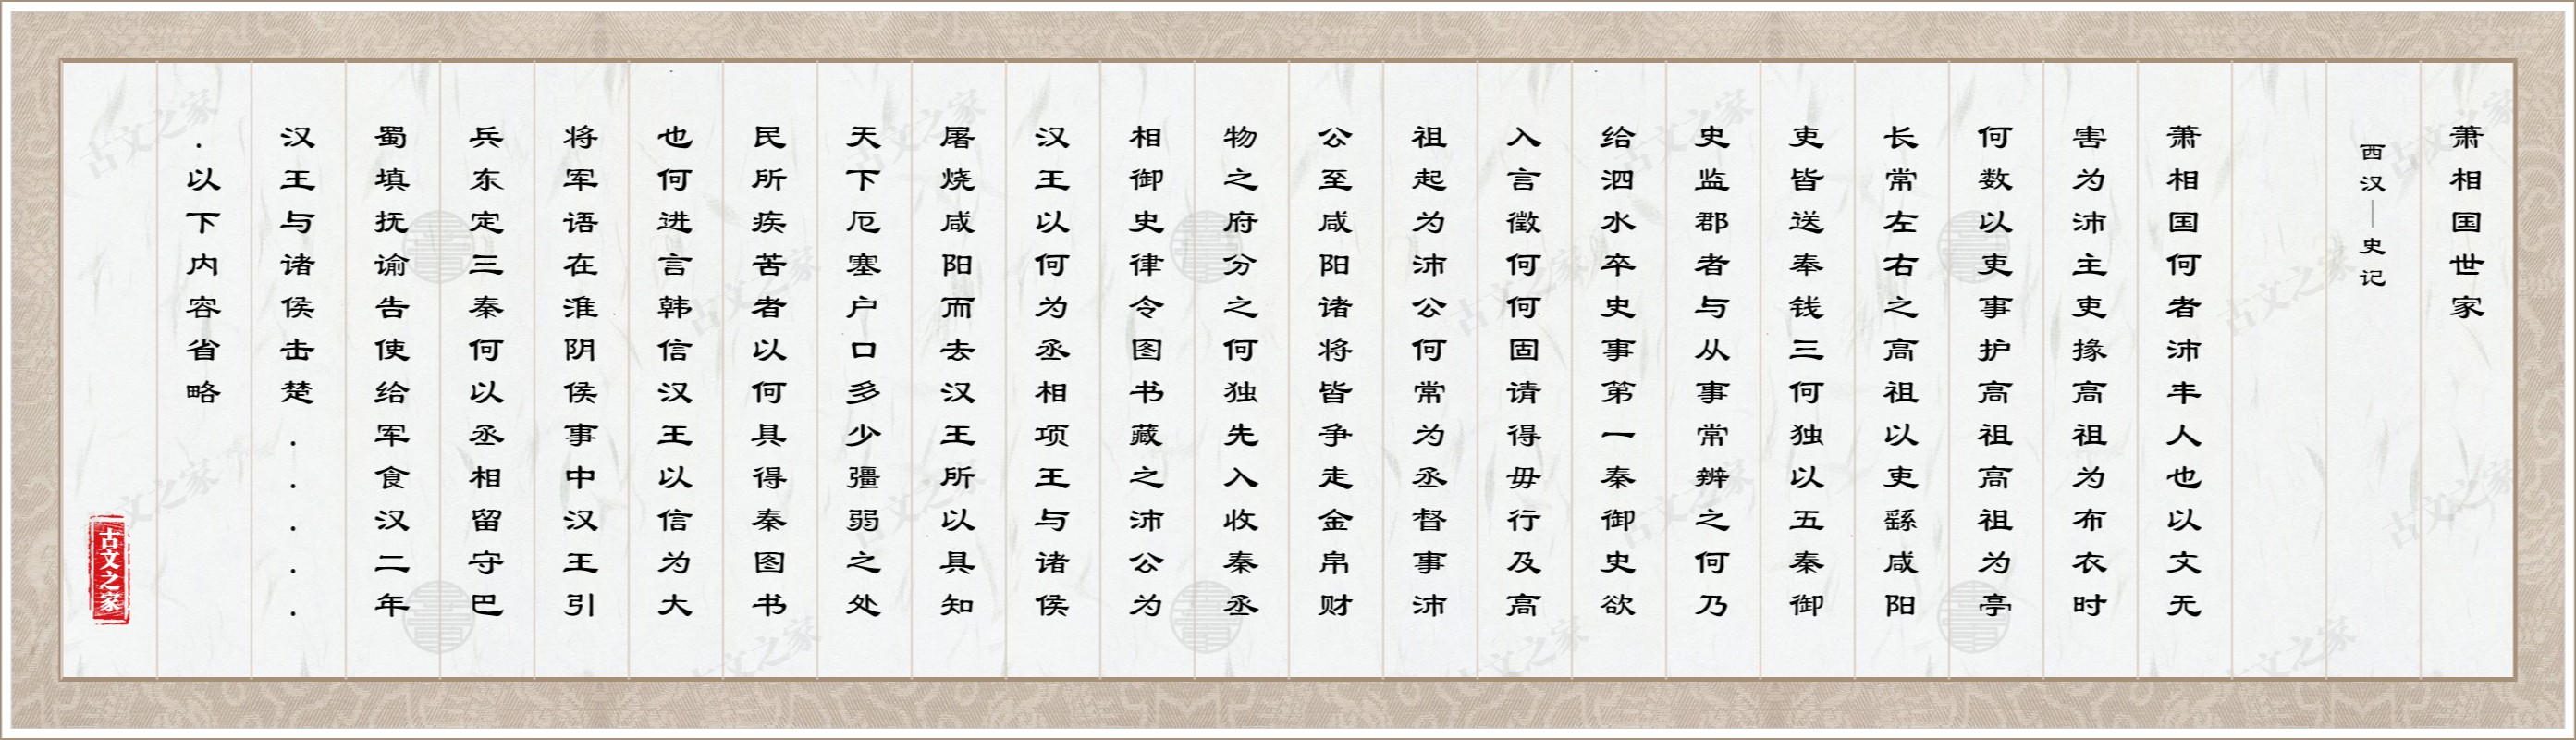 萧相国世家
西汉—史记
萧相国何者沛丰人也以文无
害为沛主吏掾高祖为布衣时
何数以吏事护高祖高祖为亭
长常左右之高祖以吏繇咸阳
吏皆送奉钱三何独以五秦御
史监郡者与从事常辨之何乃
给泗水卒史事第一秦御史欲
入言徵何何固请得毋行及高
祖起为沛公何常为丞督事沛
公至咸阳诸将皆争走金帛财
物之府分之何独先入收秦丞
相御史律令图书藏之沛公为
汉王以何为丞相项王与诸侯
屠烧咸阳而去汉王所以具知
天下厄塞户口多少彊弱之处
民所疾苦者以何具得秦图书
也何进言韩信汉王以信为大
将军语在淮阴侯事中汉王引
兵东定三秦何以丞相留守巴
蜀填抚谕告使给军食汉二年
汉王与诸侯击楚.....
.以下内容省略
古文之家